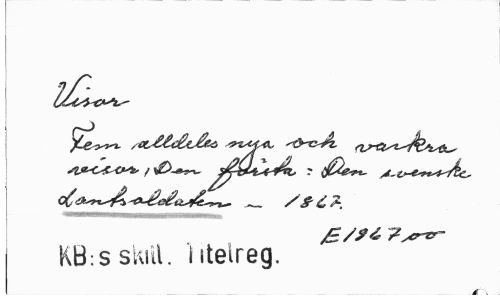 Visor
Fem alldeles nya och vackra
visor, Den första: Den svenske
Lantsoldaten – 1867.
E1967 00
KB:s skill. Titelreg.